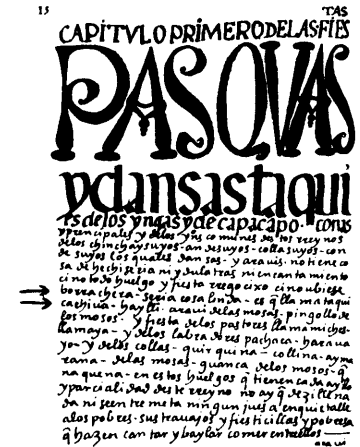 15 TAS
CAPITVLO PRIMERO DE LAS FIES
PASQVAS
y dansas taqui
es delos yngas y de capac apo. conas
y prencipales y delos yns comunes destos rreynos
delos chinchaysuyos - andesuyos - collasuyos - con
desuyos los quales dansas - y arauis. no tiene co
sa de hechiseria ni ydulatras ni encantamiento
cino todo huelgo y fiesta rregocixo ci no ubiese
borrachera - seria cosa linda - es q llama taqui
cachiua - haylli - araui delas mosas. pingollo de
los mosos. y fiesta delos pastores llama miches -
llamaya - y delos labradores pachaca - haraua
yo - y delos collas - quirquina - collina - ayma
rana - delas mosas - guanca delos mosos - q
na quena - en estos huelgos q tienen cada ayllo
y parcialidad deste rreyno no ay q dezilles na
da ni se entremeta nningun jues a enquietalle
a los pobres - sus trauajos y fiesticillas y pobresa
q hazen cantar y baylar comer entre ellos